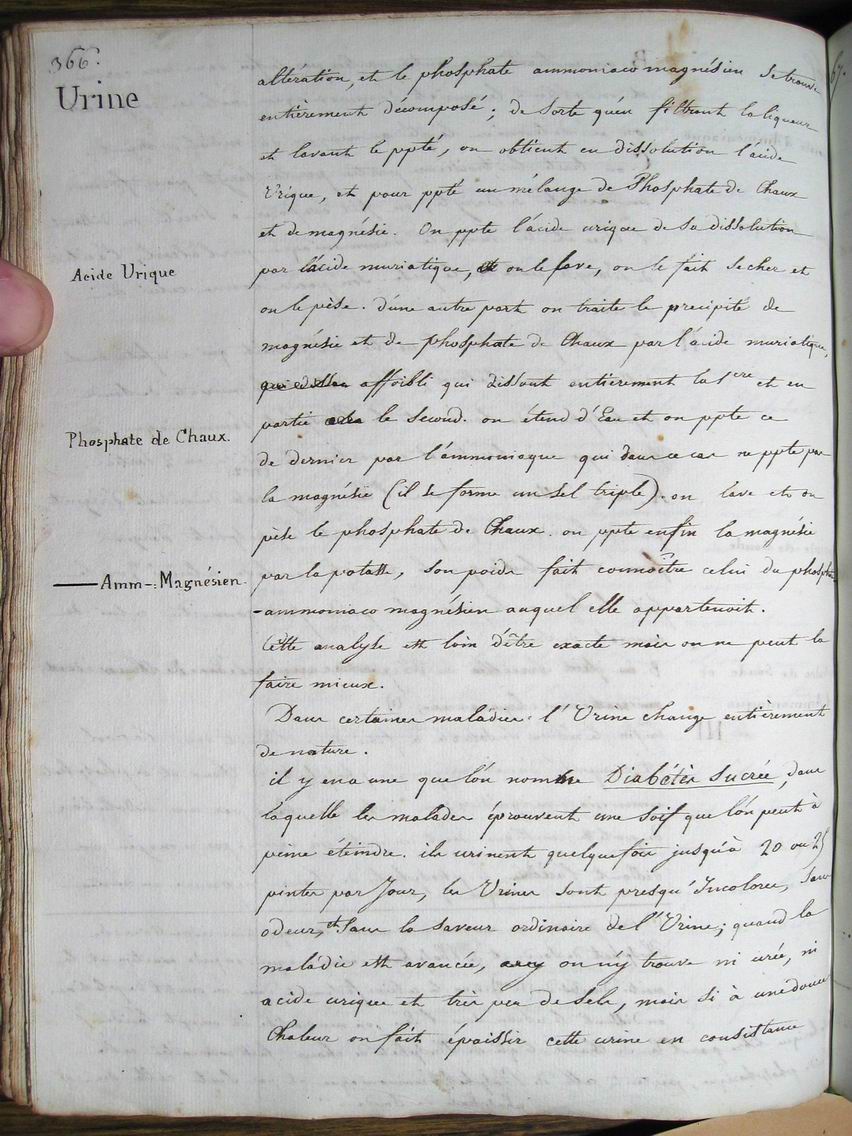 366.
Urine
altération, et le phosphate ammoniaco magnésien se trouve
entièrement décomposé; de sorte qu'en filtrant la liqueur
et lavant le ppté, on obtient en dissolution l'acide
Urique, et pour ppté un mélange de Phosphate de Chaux
et de magnésie. On ppte l'acide urique de sa dissolution
Acide Urique
par l'acide muriatique, on le lave, on le fait secher et
on le pèse. d'une autre part on traite le precipité de
magnésie et de phosphate de Chaux par l'acide muriatique,
affoibli qui dissout entierement la 1ere et en
partie le second. on étend d'Eau et on ppte ce
Phosphate de Chaux.
de dernier par l'ammoniaque qui dans ce cas ne ppte pas
la magnésie (il se forme un sel triple). on lave et on
pèse le phosphate de Chaux. on ppte enfin la magnésie
— Amm-: Magnésien.
par la potasse, son poids fait connoître celui du phosph
-ammoniaco magnésien auquel elle appartenoit.
Cette analyse est loin d'être exacte mais on ne peut la
faire mieux.
Dans certaines maladies l'Urine change entièrement
de nature.
il y en a une que l'on nomme Diabétès Sucrée, dans
laquelle les malades éprouvent une soif que l'on peut à
peine éteindre. ils urinent quelquefois jusqu'à 20 ou 25
pintes par Jour, les Urines sont presqu'Incolores, sans
odeur, et sans la saveur ordinaire de l'Urine; quand la
maladie est avancée, on n'y trouve ni urée, ni
acide urique et très peu de sels, mais si à une douce
Chaleur on fait épaissir cette urine en consistance